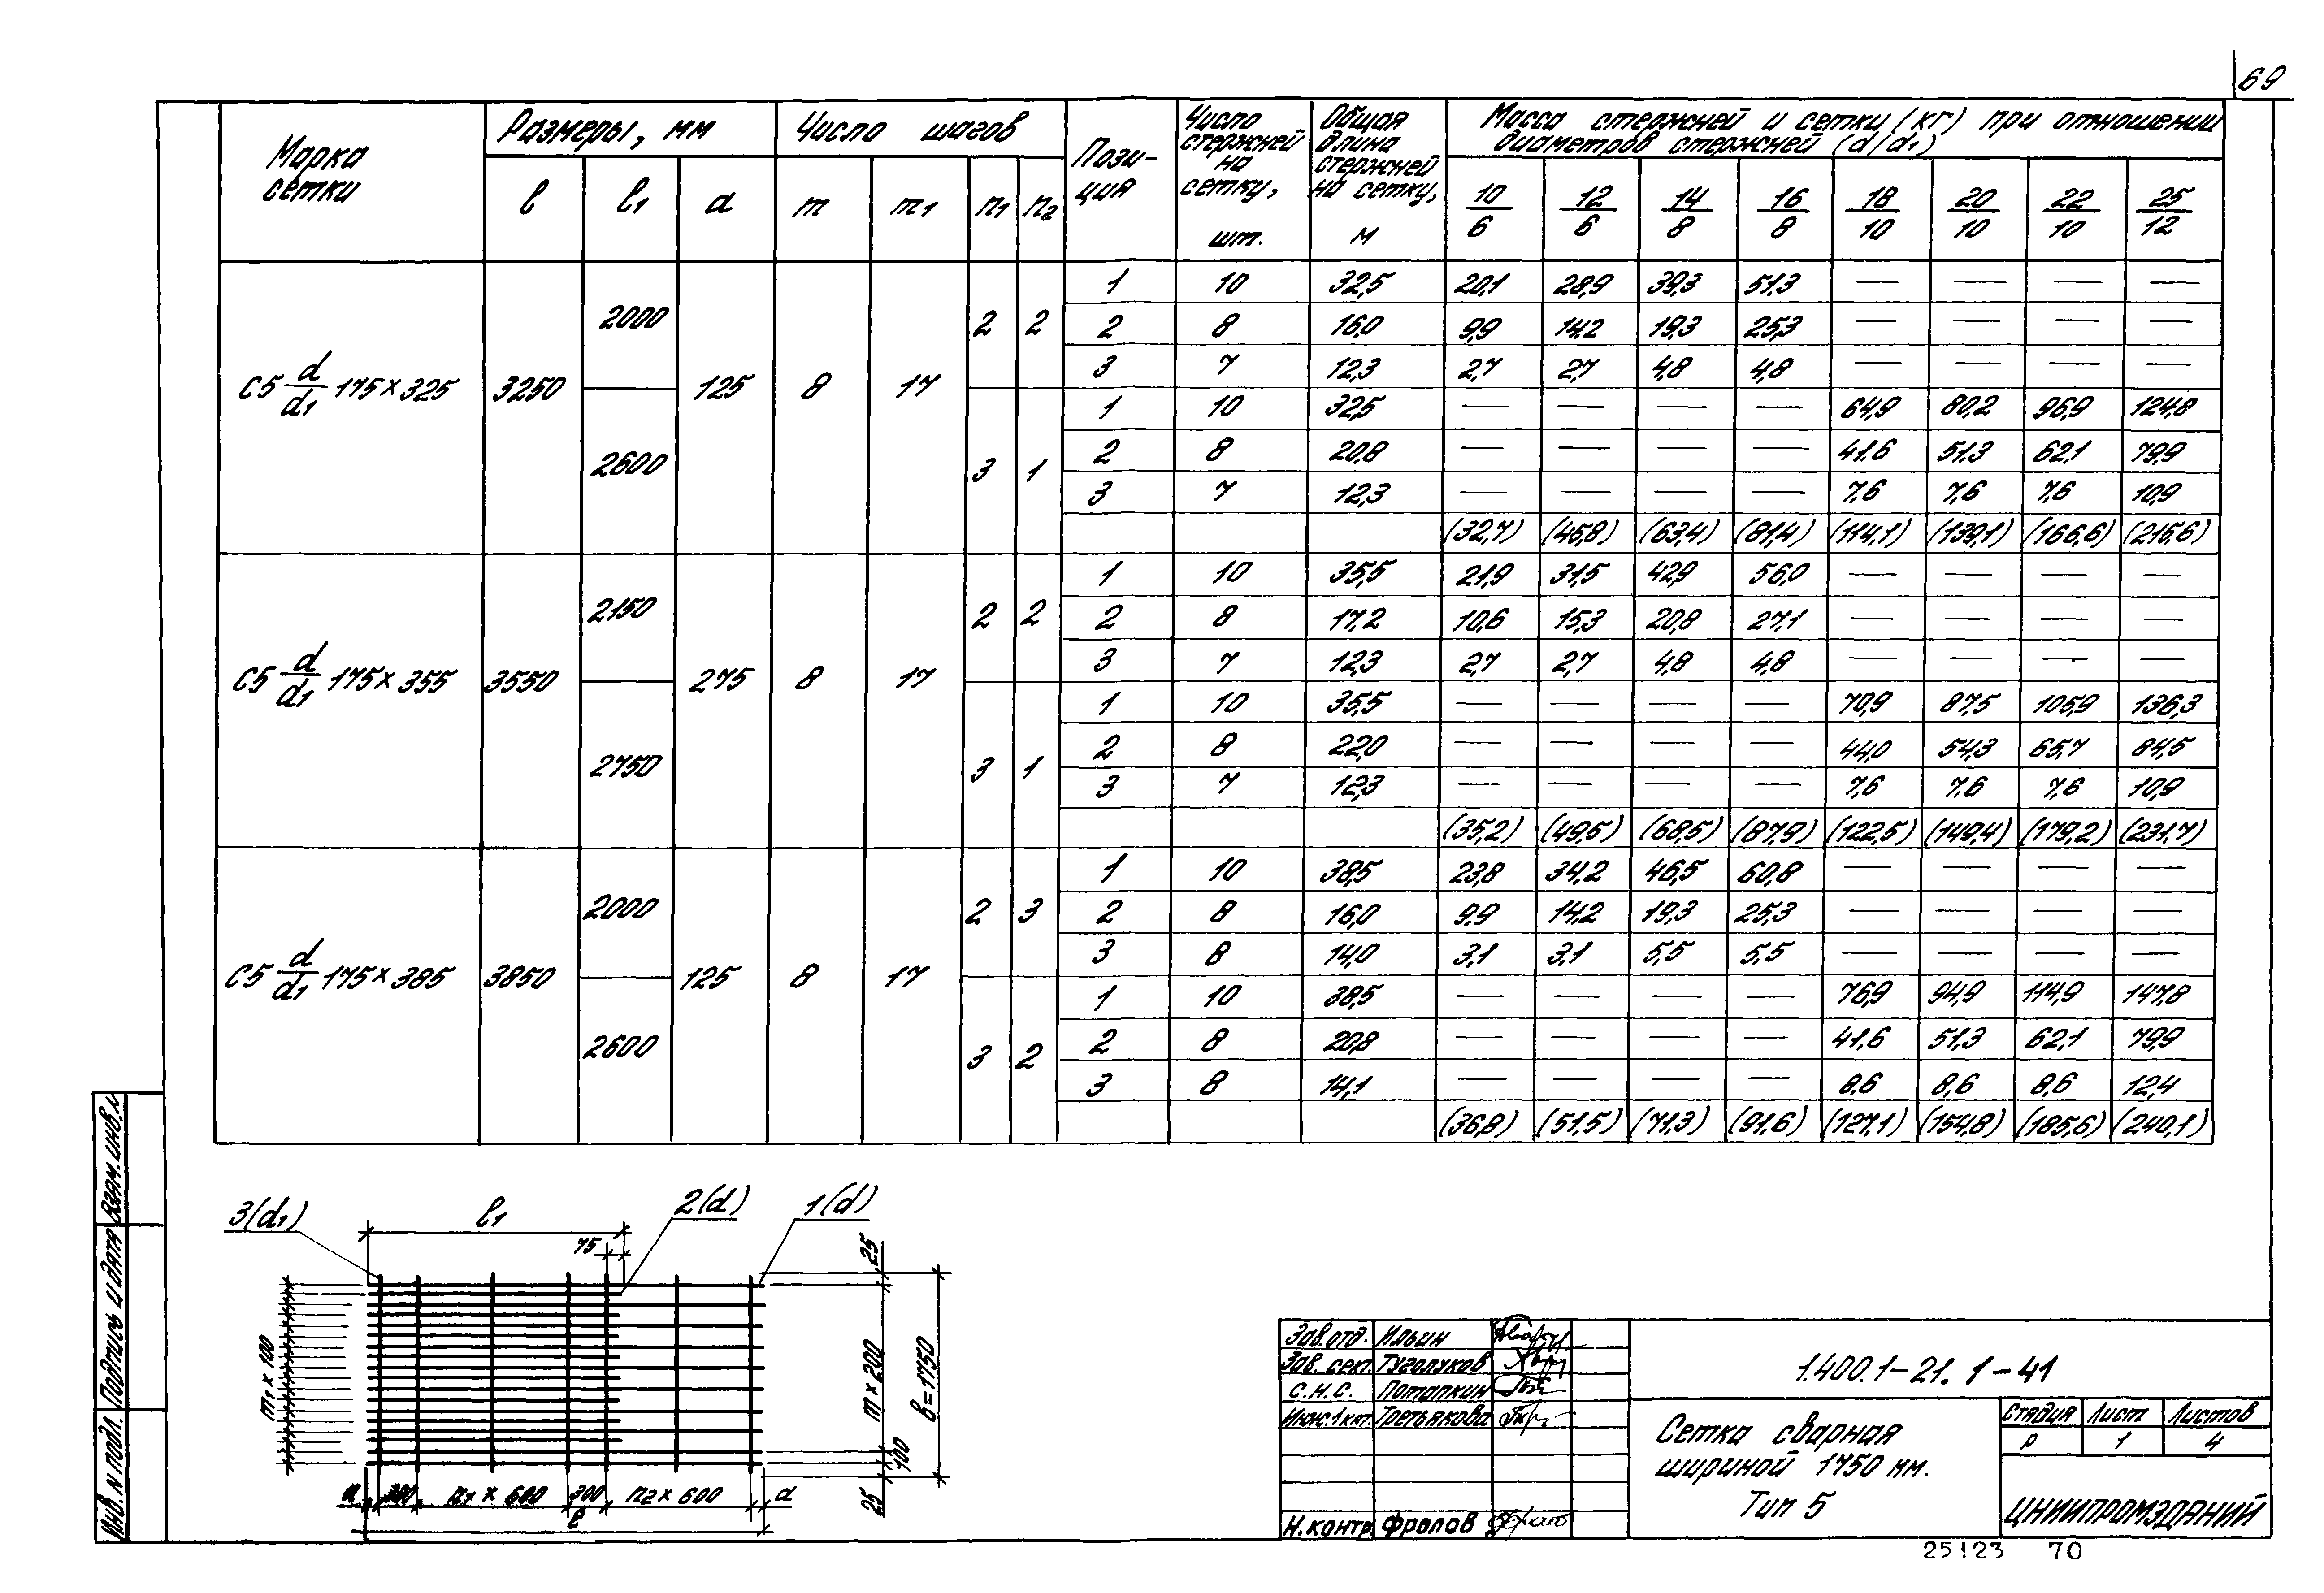 69
Марка сетки | Размеры, мм | Число шагов | Пози-ция | Число стержней на сетку, шт. | Общая длина стержней на сетку, м | Масса стержней и сетки (кг) при отношении диаметров стержней (d/d1)
l | l1 | a | m | m1 | n1 | n2 | 10/6 | 12/6 | 14/8 | 16/8 | 18/10 | 20/10 | 22/10 | 25/12
С5 d/d1 175×325 | 3250 | 2000 | 125 | 8 | 17 | 2 | 2
1 | 10 | 32,5 | 20,1 | 28,9 | 39,3 | 51,3 | — | — | — | —
2 | 8 | 16,0 | 9,9 | 14,2 | 19,3 | 25,3 | — | — | — | —
3 | 7 | 12,3 | 2,7 | 2,7 | 4,8 | 4,8 | — | — | — | —
2600 | 3 | 1
1 | 10 | 32,5 | — | — | — | — | 64,9 | 80,2 | 96,9 | 124,8
2 | 8 | 20,8 | — | — | — | — | 41,6 | 51,3 | 62,1 | 79,9
3 | 7 | 12,3 | — | — | — | — | 7,6 | 7,6 | 7,6 | 10,9
(32,7) | (45,8) | (63,4) | (81,4) | (114,1) | (139,1) | (166,6) | (215,6)
С5 d/d1 175×355 | 3550 | 2150 | 275 | 8 | 17 | 2 | 2
1 | 10 | 35,5 | 21,9 | 31,5 | 42,9 | 56,0 | — | — | — | —
2 | 8 | 17,2 | 10,6 | 15,3 | 20,8 | 27,1 | — | — | — | —
3 | 7 | 12,3 | 2,7 | 2,7 | 4,8 | 4,8 | — | — | — | —
2750 | 3 | 1
1 | 10 | 35,5 | — | — | — | — | 70,9 | 87,5 | 105,9 | 136,3
2 | 8 | 22,0 | — | — | — | — | 44,0 | 54,3 | 65,7 | 84,5
3 | 7 | 12,3 | — | — | — | — | 7,6 | 7,6 | 7,6 | 10,9
(35,2) | (49,5) | (68,5) | (87,9) | (122,5) | (149,4) | (179,2) | (231,7)
С5 d/d1 175×385 | 3850 | 2000 | 125 | 8 | 17 | 2 | 3
1 | 10 | 38,5 | 23,8 | 34,2 | 46,5 | 60,8 | — | — | — | —
2 | 8 | 16,0 | 9,9 | 14,2 | 19,3 | 25,3 | — | — | — | —
3 | 8 | 14,0 | 3,1 | 3,1 | 5,5 | 5,5 | — | — | — | —
2600 | 3 | 2
1 | 10 | 38,5 | — | — | — | — | 76,9 | 94,9 | 114,9 | 147,8
2 | 8 | 20,8 | — | — | — | — | 41,6 | 51,3 | 62,1 | 79,9
3 | 8 | 14,1 | — | — | — | — | 8,6 | 8,6 | 8,6 | 12,4
(36,8) | (51,5) | (71,3) | (91,6) | (127,1) | (154,8) | (185,6) | (240,1)
3(d1) l1 2(d) 1(d)
75
25
m1×100
m×200
b=1750
100
25
a 300 n1×600 300 n2×600 a
l
Инв. N подл. Подпись и дата Взам. инв. N
Зав.отд. Ильин
Зав. сект. Туголуков
С.Н.С. Потапкин
Инж.1кат. Третьякова
Н.контр. Фролов
1.400.1-21.1-41
Сетка сварная
шириной 1750 мм.
Тип 5
Стадия Лист Листов
Р 1 4
ЦНИИПРОМЗДАНИЙ
25123 70